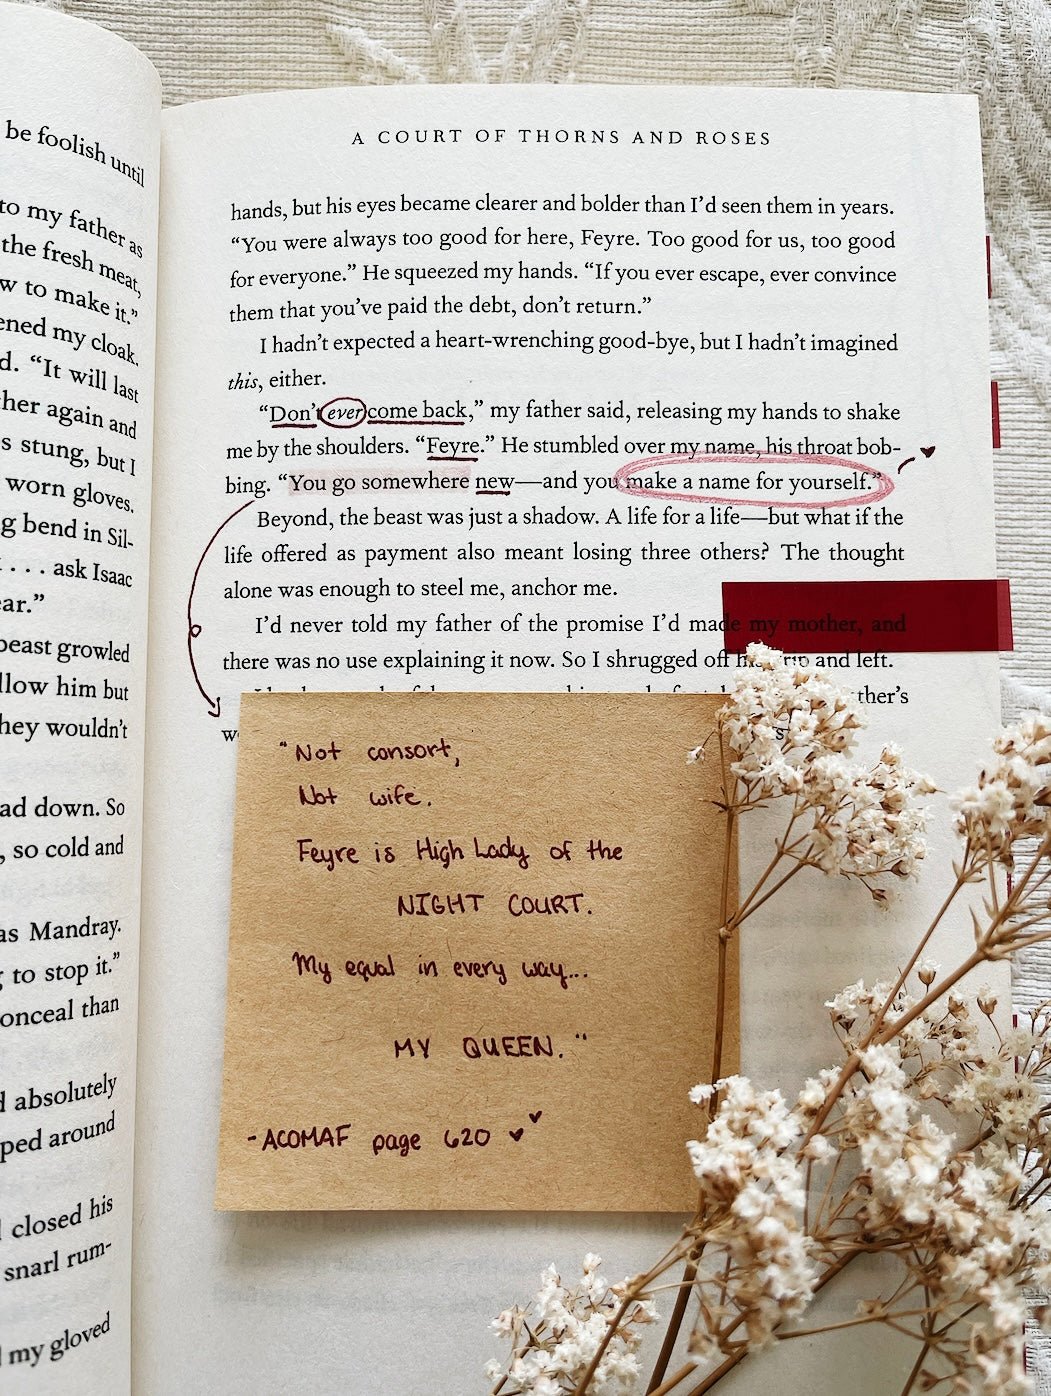 be foolish until
to my father as
the fresh meat,
w to make it.”
ened my cloak.
d. “It will last
her again and
s stung, but I
worn gloves.
g bend in Sil-
. . . ask Isaac
ar.”
beast growled
llow him but
hey wouldn’t
ad down. So
, so cold and
as Mandray.
g to stop it.”
onceal than
d absolutely
ped around
closed his
snarl rum-
my gloved
A COURT OF THORNS AND ROSES
hands, but his eyes became clearer and bolder than I’d seen them in years.
“You were always too good for here, Feyre. Too good for us, too good
for everyone.” He squeezed my hands. “If you ever escape, ever convince
them that you’ve paid the debt, don’t return.”
I hadn’t expected a heart-wrenching good-bye, but I hadn’t imagined
this, either.
“Don’t ever come back,” my father said, releasing my hands to shake
me by the shoulders. “Feyre.” He stumbled over my name, his throat bob-
bing. “You go somewhere new—and you make a name for yourself.”
Beyond, the beast was just a shadow. A life for a life—but what if the
life offered as payment also meant losing three others? The thought
alone was enough to steel me, anchor me.
I’d never told my father of the promise I’d made my mother, and
there was no use explaining it now. So I shrugged off his grip and left.
ther’s
"Not consort,
Not wife.
Feyre is High Lady of the
NIGHT COURT.
My equal in every way...
MY QUEEN."
-ACOMAF page 620